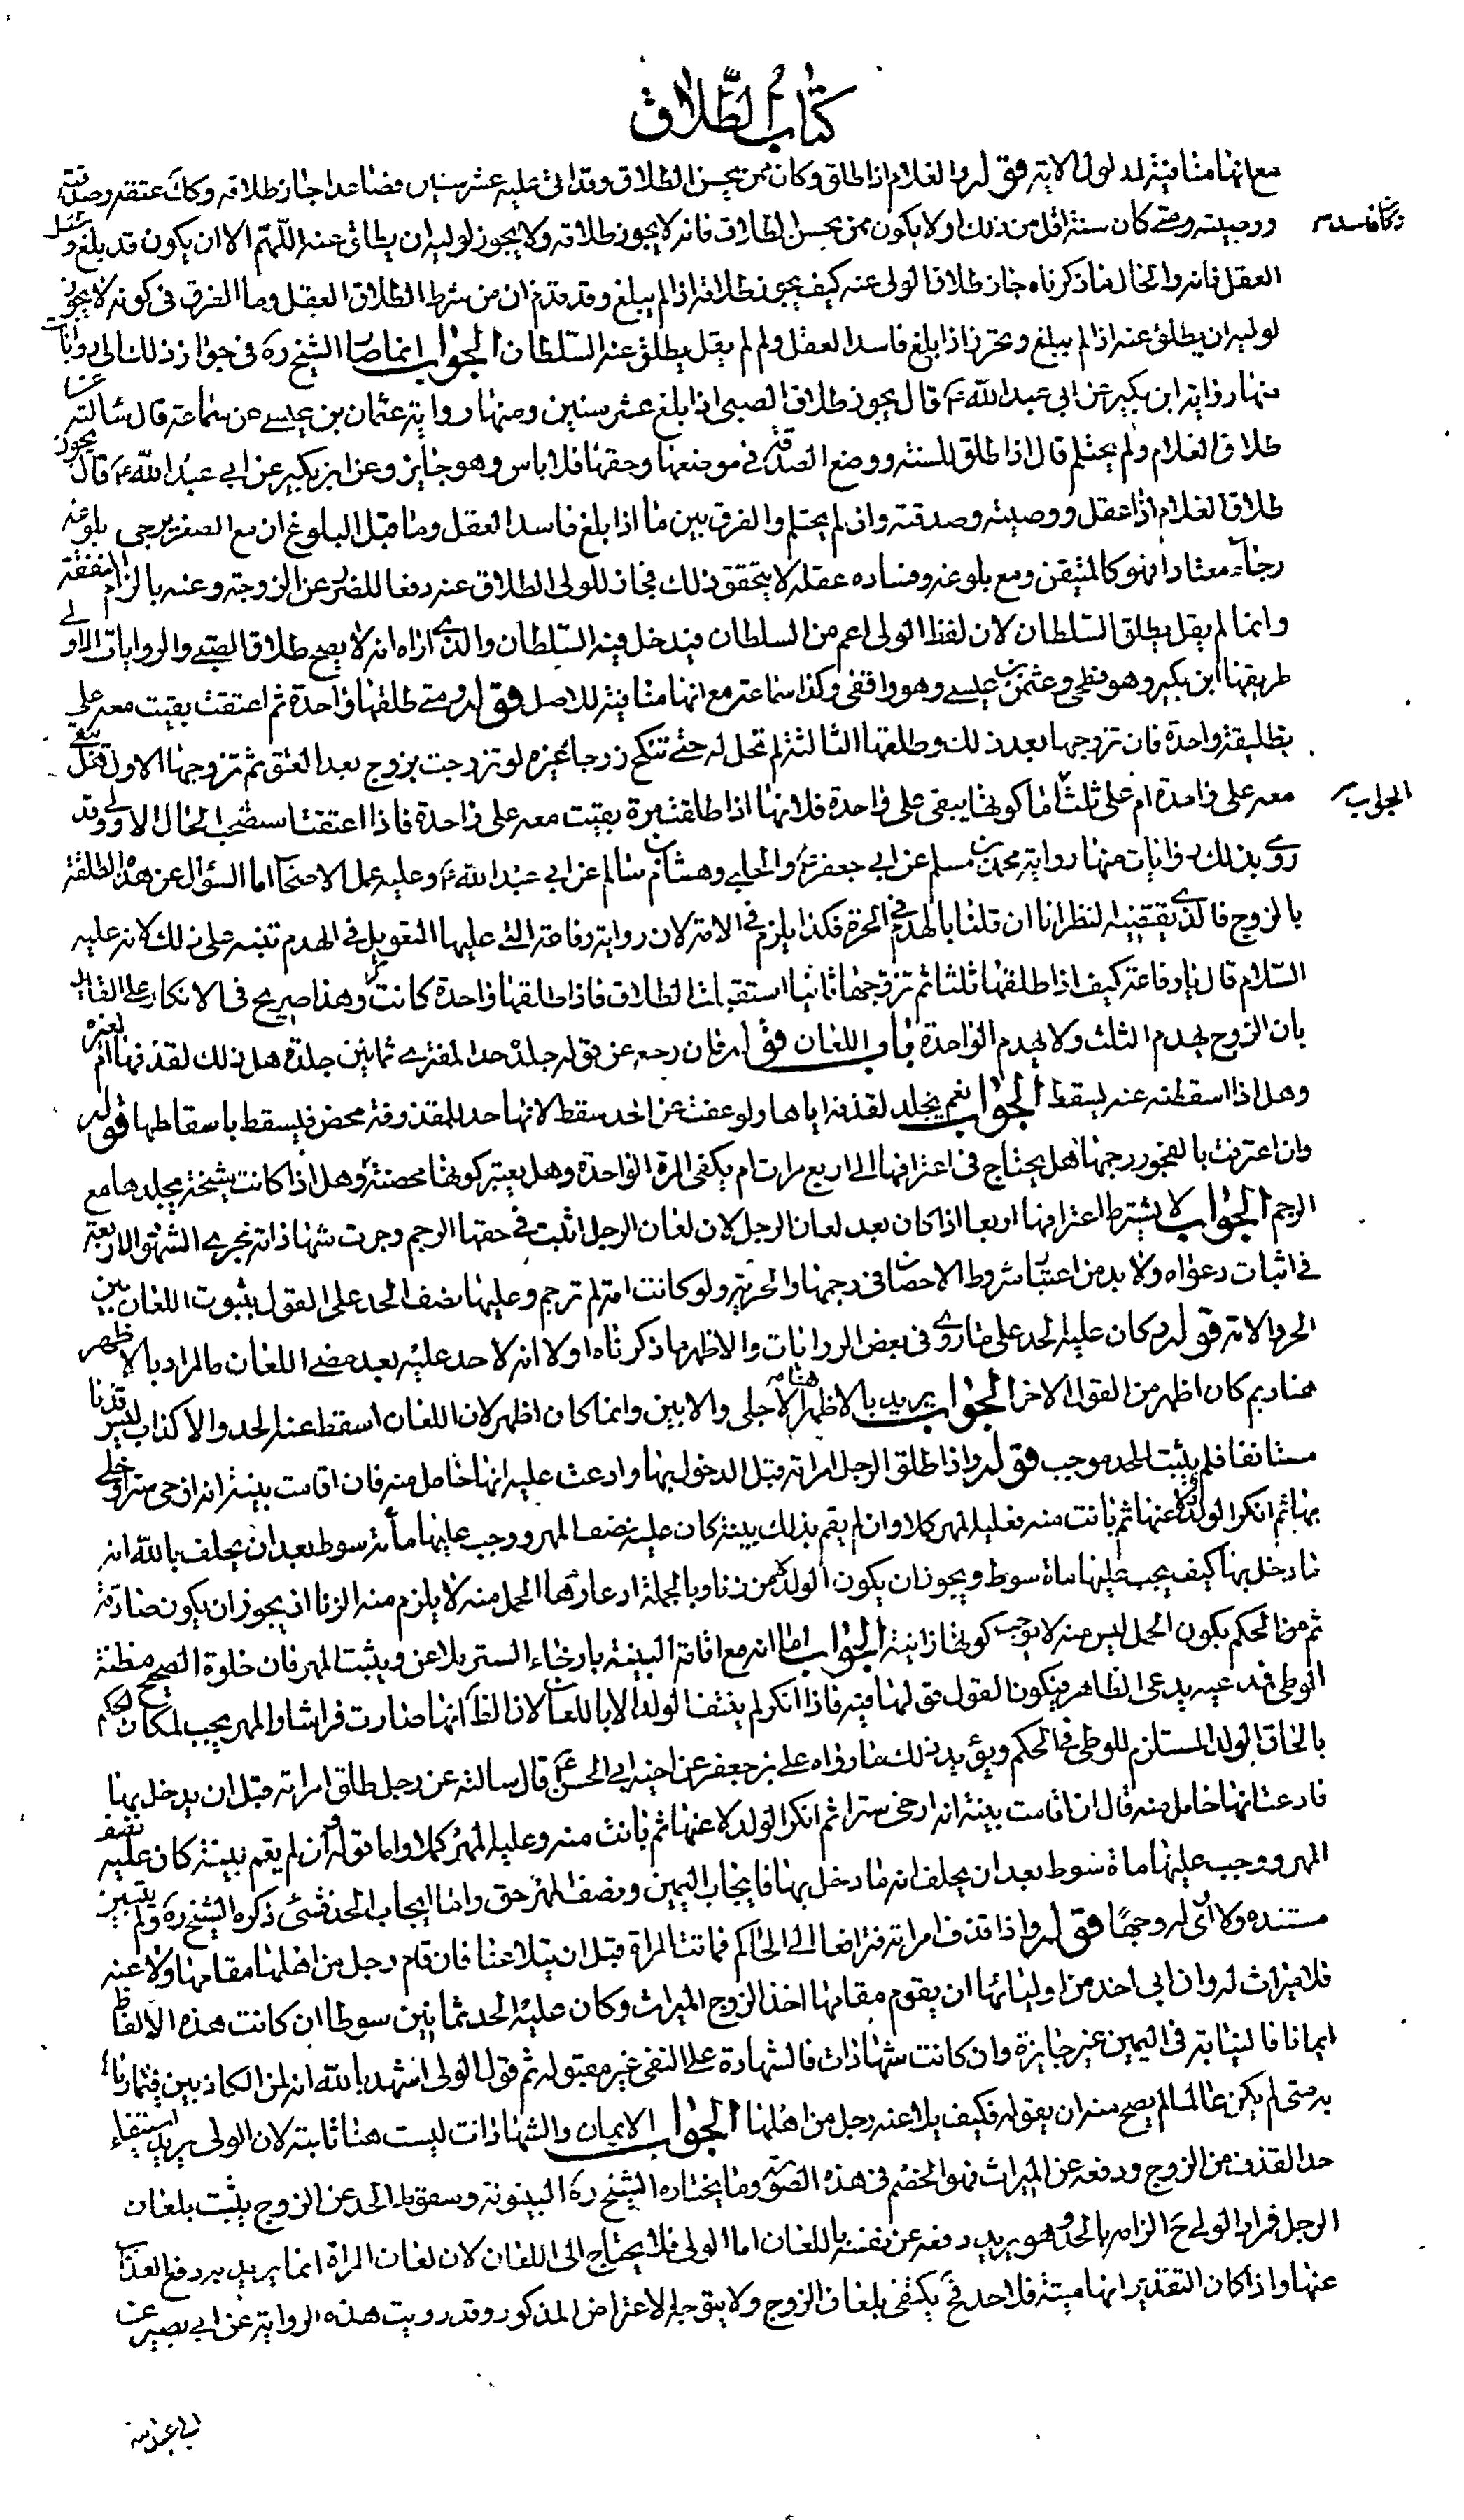 كتاب الطلاق
مع انها منافية لمدلول الاية قوله والغلام اذا طلق وكان ممن يحسن الطلاق وقد اتى عليه عشر سنين فصاعدا جاز طلاقه وكك عتقه وصدقته
ووصيته ومتى كان سنه اقل من ذلك او لا يكون ممن يحسن الطلاق فانه لا يجوز طلاقه ولا يجوز لوليه ان يطلق عنه اللهم الا ان يكون قد بلغ و
وكان فاسد
العقل فانه والحال ما ذكرناه جاز طلاق الولى عنه كيف يجوز طلاقه اذا لم يبلغ وقد قدم ان من شرط الطلاق العقل وما الفرق فى كونه لا يجوز
لوليه ان يطلق عنه اذا لم يبلغ ويجوز اذا بلغ فاسد العقل ولم لم يقل يطلق عنه السلطان الجواب انما صار الشيخ ره فى جواز ذلك الى روايات
منها رواية ابن بكير عن ابى عبد الله ع قال يجوز طلاق الصبى اذا بلغ عشر سنين ومنها رواية عثمان بن عيسى عن سماعة قال سالته عن
طلاق الغلام ولم يحتلم قال اذا طلق للسنة ووضع الصدقة فى موضعها وحقها فلا باس وهو جايز وعن ابن بكير عن ابى عبد الله ع قال يجوز
طلاق الغلام اذا عقل ووصيته وصدقته وان لم يحتلم والفرق بين ما اذا بلغ فاسد العقل وما قبل البلوغ ان مع الصغر يرجى بلوغه
رجاء معتادا فهو كالمتيقن ومع بلوغه وفساد عقله لا يتحقق ذلك فجاز للولى الطلاق عنه دفعا للضرر عن الزوجة وعنه بالزام النفقة
وانما لم يقل يطلق السلطان لان لفظ الولى اعم من السلطان فيدخل فيه السلطان والذى اراه انه لا يصح طلاق الصبى والروايات الاولى
طريقها ابن بكير وهو فطحى وعثمن بن عيسى وهو واقفى وكذا سماعة مع انها منافية للاصل قوله ومتى طلقها واحدة ثم اعتقت بقيت معه على
تطليقة واحدة فان تزوجها بعد ذلك وطلقها الثالثة لم تحل له حتى تنكح زوجا غيره لو تزوجت بزوج بعد العتق ثم تزوجها الاول هل تبقى
معه على واحدة ام على ثلث اما كونها يبقى على واحدة فلانها اذا طلقت مرة بقيت معه على واحدة فاذا اعتقت استصحب الحال الاولى وقد
الجواب
روى بذلك روايات منها رواية محمد بن مسلم عن ابى جعفر ع والحلبى وهشام بن سالم عن ابى عبد الله ع وعليه عمل الاصحاب اما السؤال عن هدم الطلقة
بالزوج فالذى يقتضيه النظر انا ان قلنا بالهدم فى الحرة فكذا يلزم فى الامة لان رواية رفاعة التى عليها التعويل فى الهدم تنبه على ذلك لانه عليه
السلام قال يا رفاعة كيف اذا طلقها ثلثا ثم تزوجها ثانيا استقبلت الطلاق فاذا طلقها واحدة كانت وهذا صريح فى الانكار على القايل
بان الزوج يهدم الثلث ولا يهدم الواحدة باب اللعان قوله فان رجع عن قوله جلد حد المفترى ثمانين جلدة هل ذلك لقذفها ام لغيره
وهل اذا اسقطته عنه يسقط الجواب نعم يجلد لقذفه اياها ولو عفت عن الحد سقط لانها حد للمقذوفة محض فيسقط باسقاطها قوله
وان اعترفت بالفجور رجمها هل يحتاج فى اعترافها الى اربع مرات ام يكفى المرة الواحدة وهل يعتبر كونها محصنة وهل اذا كانت شيخة يجلدها مع
الرجم الجواب لا يشترط اعترافها اربعا اذا كان بعد لعان الرجل لان لعان الرجل اثبت فى حقها الرجم وجرت شهاداته مجرى الشهود الاربعة
فى اثبات دعواه ولا بد من اعتبار شروط الاحصان فى رجمها والحرية ولو كانت امة لم ترجم وعليها نصف الحد على القول بثبوت اللعان بين
الحر والامة قوله وكان عليه الحد على ما روى فى بعض الروايات والاظهر ما ذكرناه اولا انه لا حد عليه بعد مضى اللعان ما المراد بالاظهر
هنا وبم كان اظهر من القول الاخر الجواب يريد بالاظهر هنا الاجلى والابين وانما كان اظهر لان اللعان اسقط عنه الحد والاكذاب ليس قذفا
مستانفا فلم يثبت الحد موجب قوله واذا طلق الرجل امراته قبل الدخول بها وادعت عليه انها حامل منه فان اقامت بينة انه ارخى سترا وخلى
بها ثم انكر الولد لاعنها ثم بانت منه فعليه المهر كملا وان لم يقم بذلك بينة كان عليه نصف المهر ووجب عليها مائة سوط بعد ان يحلف بالله انه
ما دخل بها كيف يجب عليها ماة سوط ويجوز ان يكون الولد من زنا وبالجملة ادعاؤها الحمل منه لا يلزم منه الزنا اذ يجوز ان يكون صادقة
ثم من الحكم بكون الحمل ليس منه لا يوجب كونها زانية الجواب اما انه مع اقامة البينة بارخاء الستر يلاعن ويثبت المهر فان خلوة الصحيح مظنة
الوطى فمدعيه يدعى الظاهر فيكون القول قولها فيه فاذا انكر لم ينتف الولد الا باللعان لان الظ انها صارت فراشا والمهر يجب لمكان الحكم
بالحاق الولد المستلزم للوطى فى الحكم ويؤيد ذلك ما رواه على بن جعفر عن اخيه ابى الحسن ع قال سالته عن رجل طلق امراته قبل ان يدخل بها
فادعت انها حامل منه قال ان اقامت بينة انه ارخى سترا ثم انكر الولد لاعنها ثم بانت منه وعليه المهر كملا واما قوله وان لم يقم بينة كان عليه نصف
المهر ووجب عليها ماة سوط بعد ان يحلف انه ما دخل بها فايجاب اليمين ونصف المهر حق واما ايجاب الحد فشئ ذكره الشيخ ره ولم يتبين
مستنده ولا ارى له وجها قوله واذا قذف امراته فترافعا الى الحاكم فماتت المراة قبل ان يتلاعنا فان قام رجل من اهلها مقامها ولاعنه
فلا ميراث له وان ابى احد من اوليائها ان يقوم مقامها اخذ الزوج الميراث وكان عليه الحد ثمانين سوطا ان كانت هذه الالفاظ
ايمانا فالنيابة فى اليمين غير جايزة وان كانت شهادات فالشهادة على النفى غير مقبولة ثم قول الولى اشهد بالله انه لمن الكاذبين فيما رماها
به متى لم يكن عالما لم يصح منه ان يقوله فكيف يلاعنه رجل من اهلها الجواب الايمان والشهادات ليست هنا ثابتة لان الولى يريد استيفاء
حد القذف من الزوج ودفعه عن الميراث فهو الخصم فى هذه الصورة وما يختاره الشيخ ره البينونة وسقوط الحد عن الزوج يثبت بلعان
الرجل فمراد الولى ح الزامه بالحد وهو يريد دفعه عن نفسه باللعان اما الولى فلا يحتاج الى اللعان لان لعان المراة انما يريد به دفع العذاب
عنها واذا كان التقدير انها ميتة فلا حد فح يكتفى بلعان الزوج ولا يتوجه الاعتراض المذكور وقد رويت هذه الرواية عن ابى بصير عن
ابى عبد الله